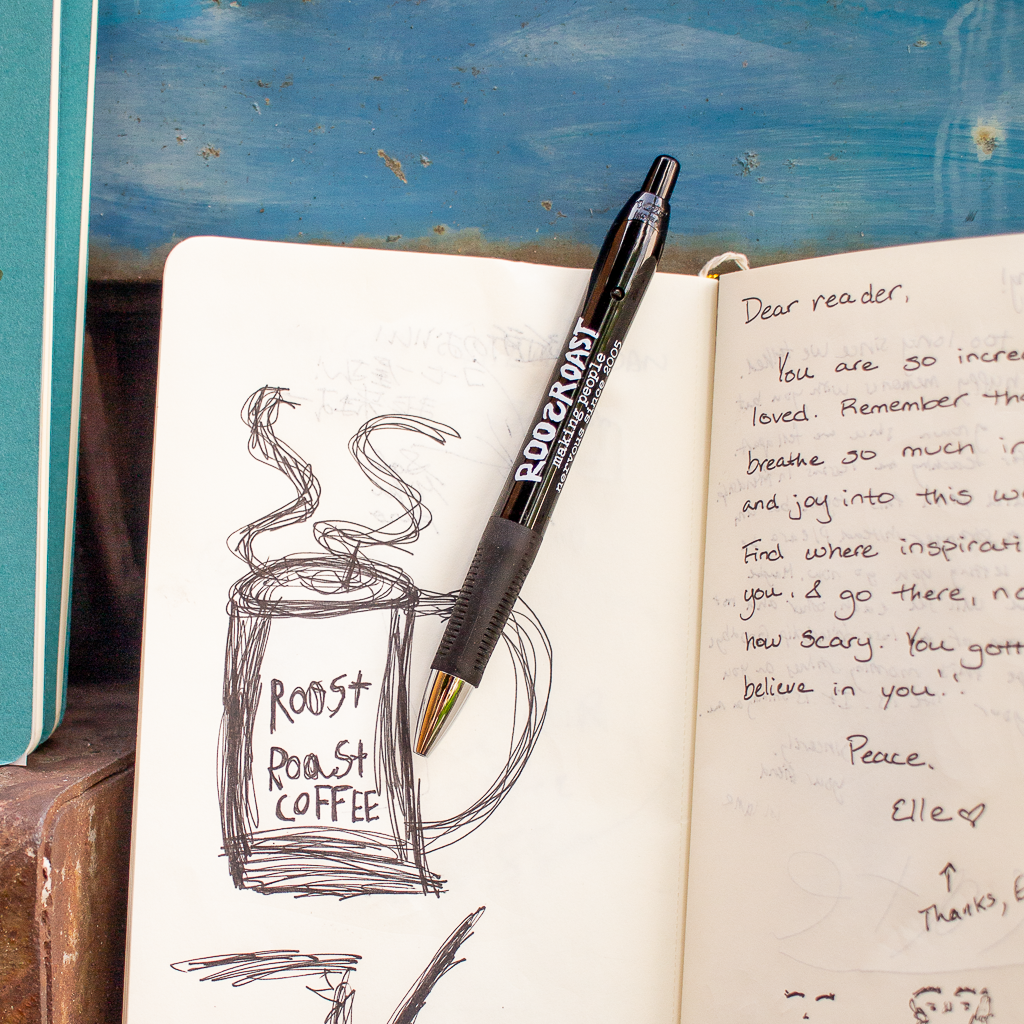 ROOSROAST
making people
nervous since 2005
Roost
Roast
COFFEE
Dear reader,
You are so incre
loved. Remember th
breathe so much in
and joy into this w
Find where inspirati
you. & go there, no
how scary. You gott
believe in you!!
Peace.
Elle♡
↑
Thanks, E